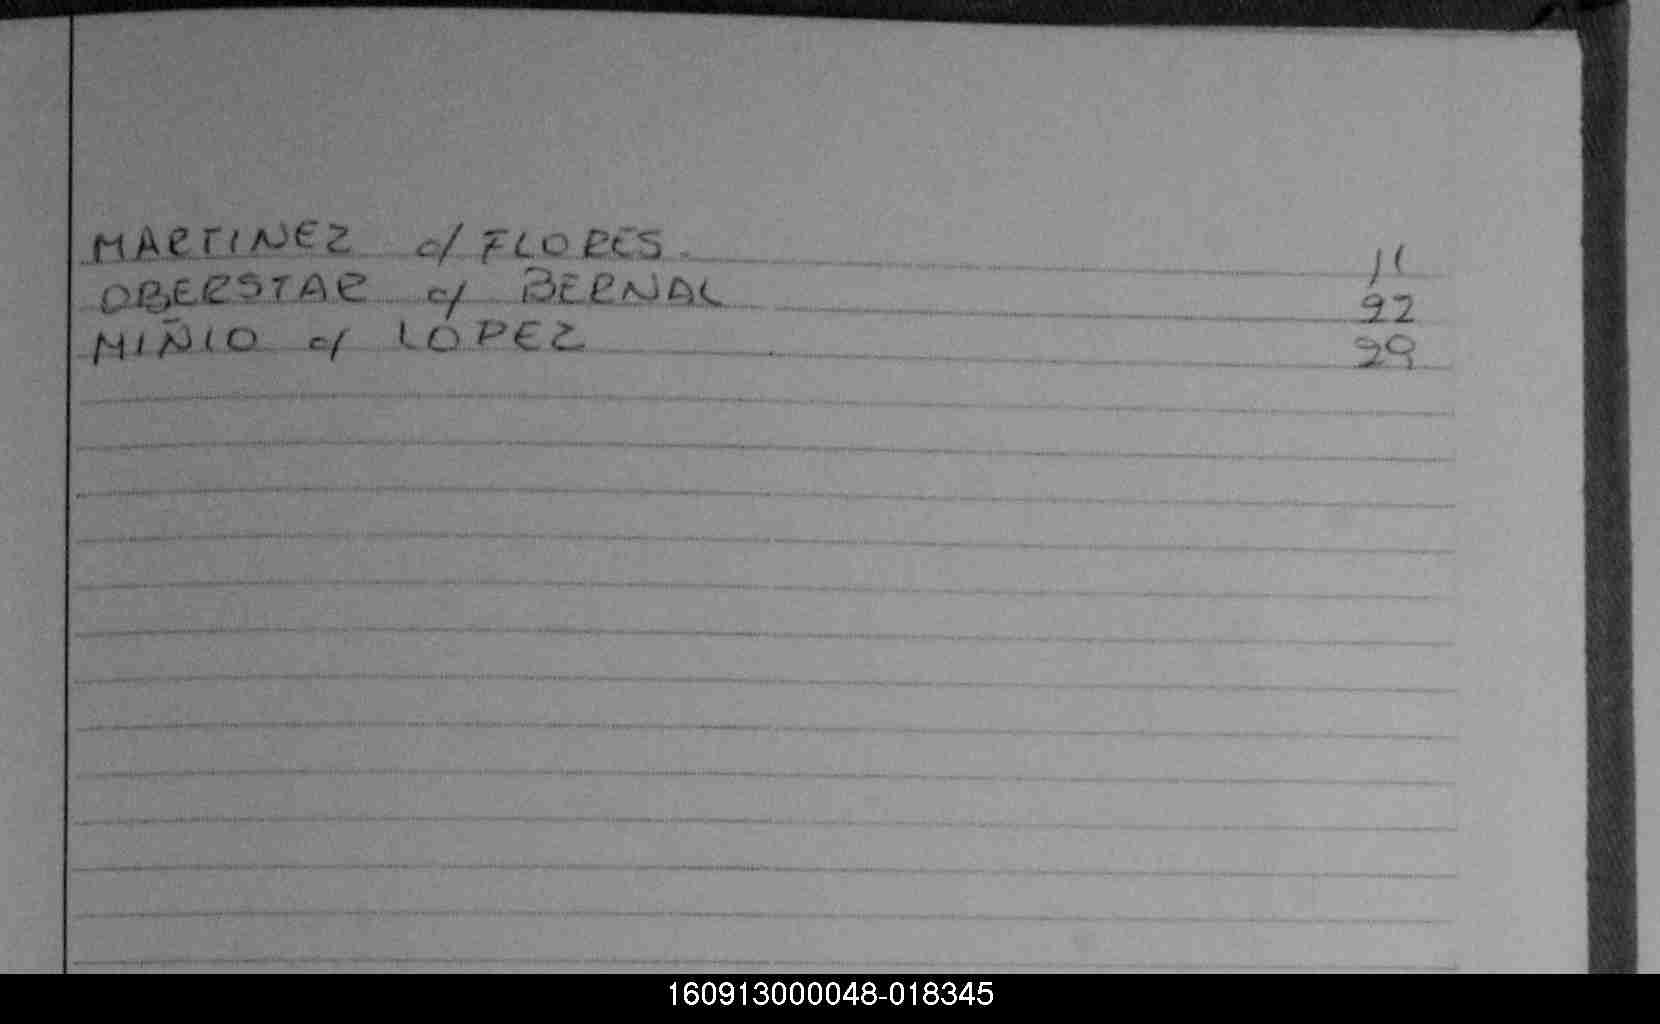 MARTINEZ c/ FLORES. 11
OBERSTAR c/ BERNAL 92
MIÑIO c/ LOPEZ 29
160913000048-018345